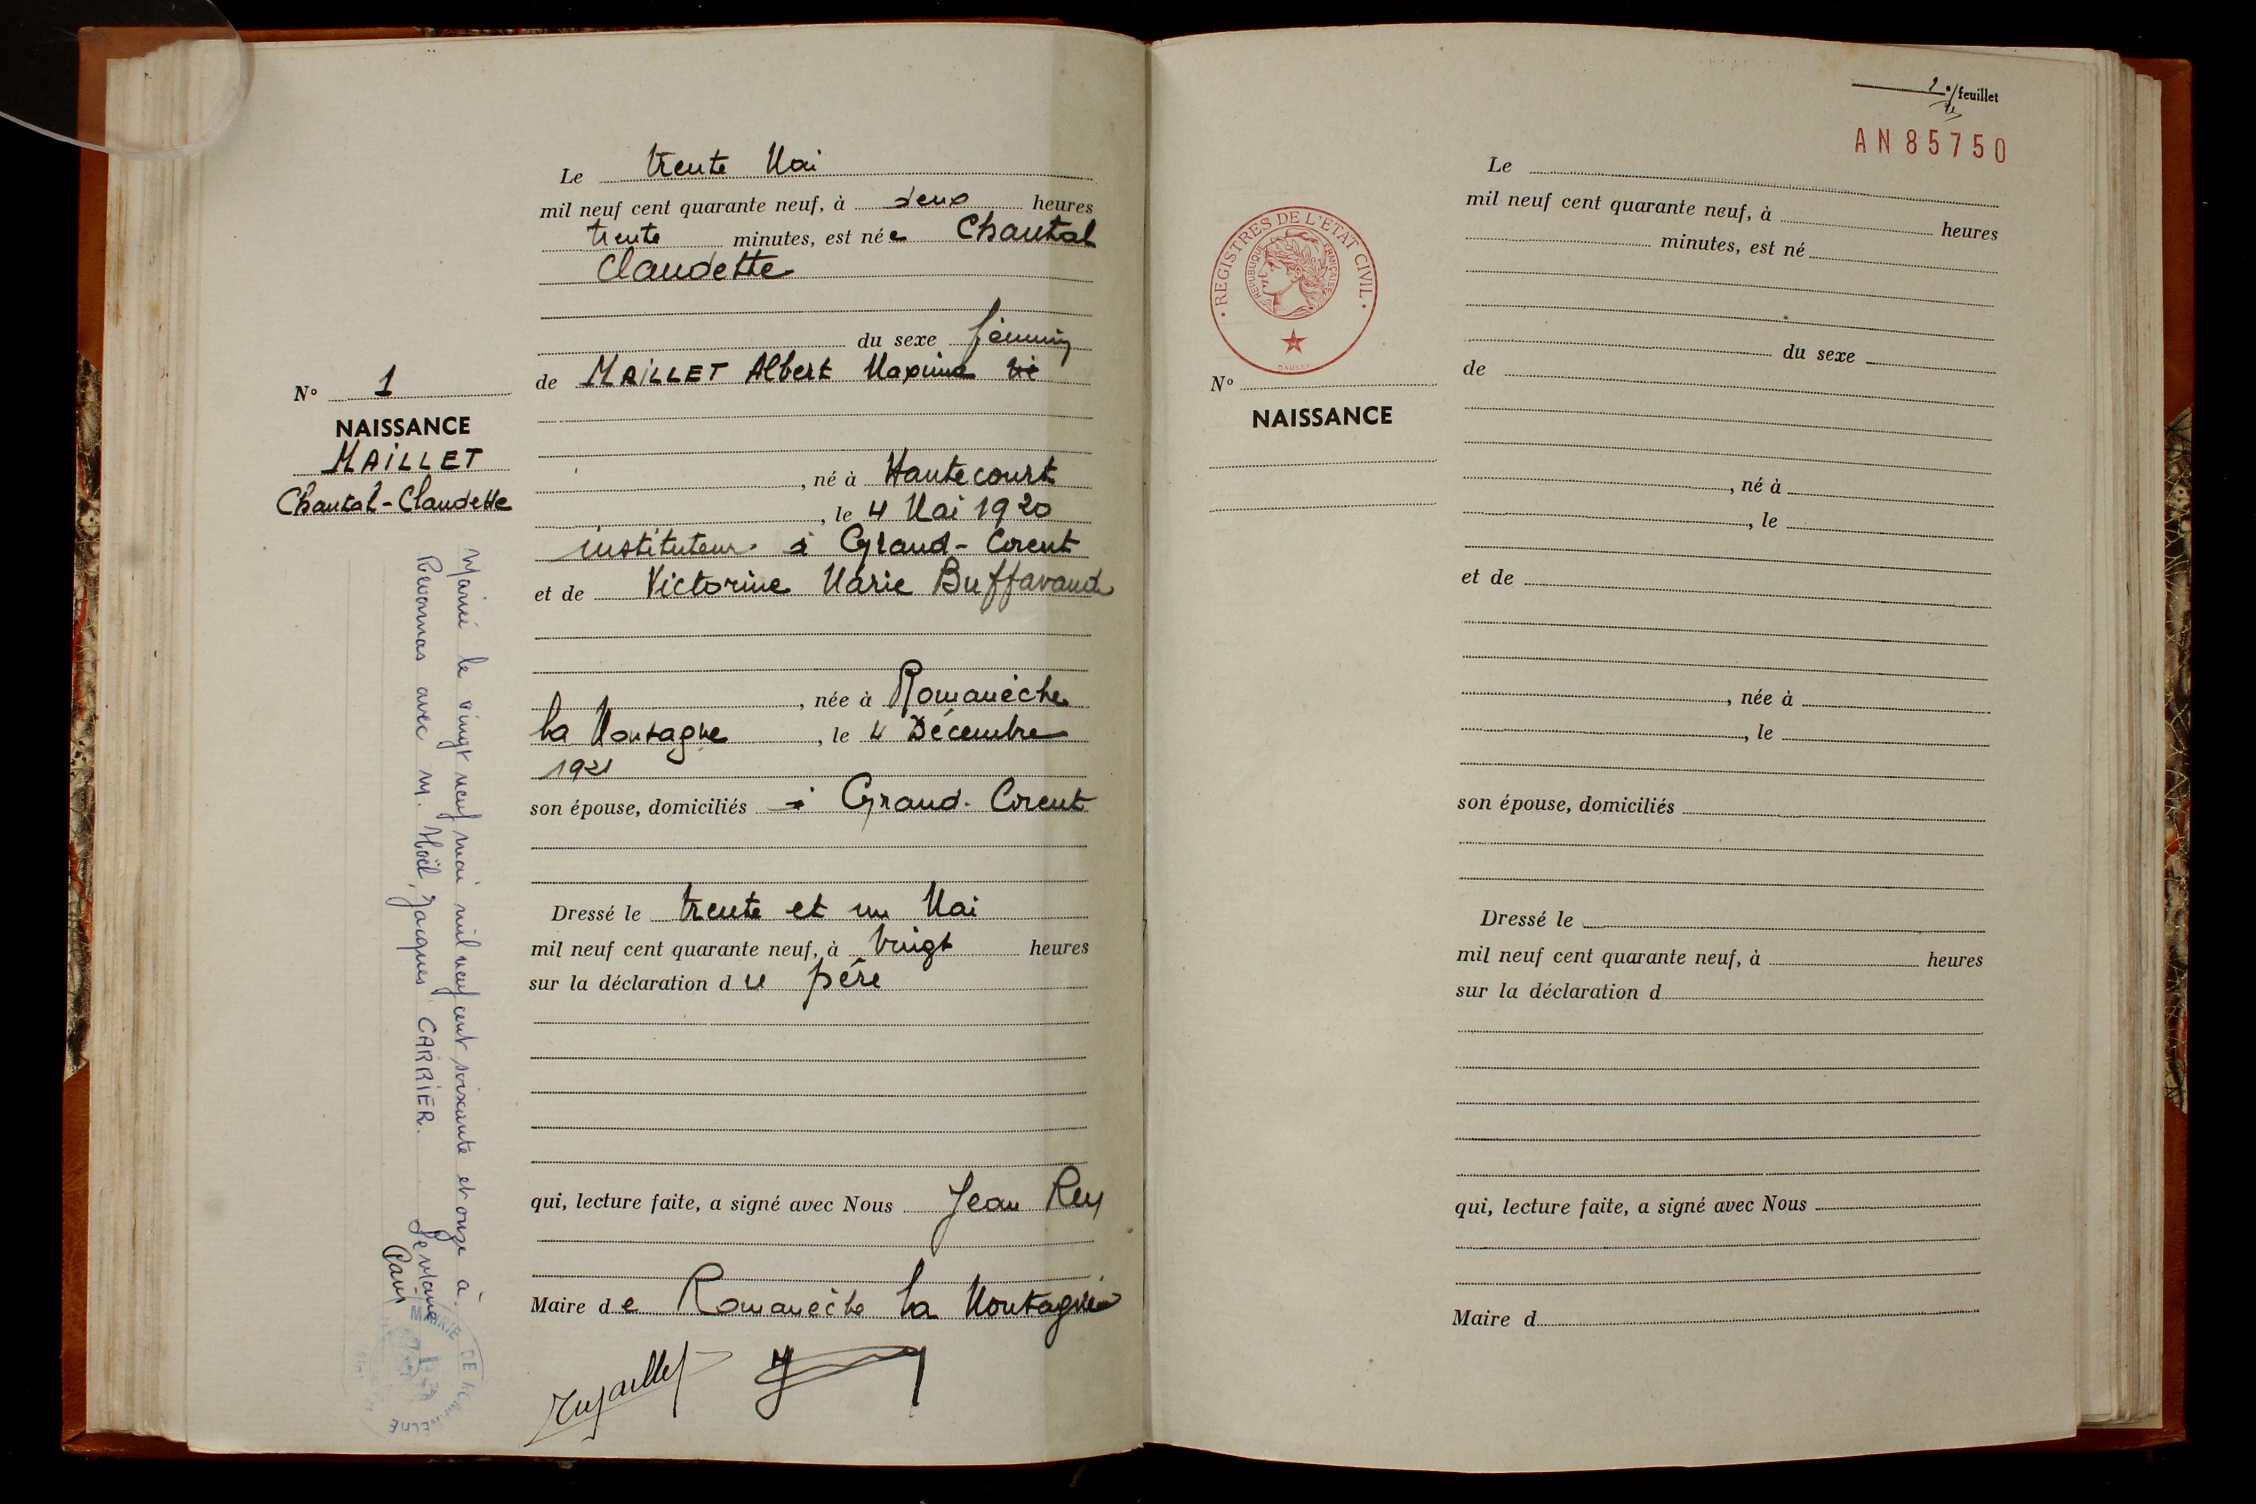 Le trente Mai
mil neuf cent quarante neuf, à deux heures
trente minutes, est née Chantal
Claudette
du sexe féminin
N° 1
de MAILLET Albert Maxime
NAISSANCE
MAILLET
Chantal-Claudette
, né à Hautecourt
, le 4 Mai 1920
instituteur à Grand-Corent
et de Victorine Marie Buffavand
, née à Romanèche
la Montagne, le 4 Décembre
1921
son épouse, domiciliés à Grand-Corent
Dressé le trente et un Mai
mil neuf cent quarante neuf, à vingt heures
sur la déclaration du père
qui, lecture faite, a signé avec Nous Jean Rey
Maire de Romanèche la Montagne
Mariée le vingt neuf mai mil neuf cent soixante et onze à
Revonnas avec M. Noël, Jacques CARRIER.
Le Maire
MAIRIE DE
2e feuillet
AN85750
REGISTRES DE L'ETAT CIVIL
REPUBLIQUE FRANÇAISE
Le
mil neuf cent quarante neuf, à heures
minutes, est né
du sexe
N°
de
NAISSANCE
, né à
, le
et de
, née à
, le
son épouse, domiciliés
Dressé le
mil neuf cent quarante neuf, à heures
sur la déclaration d
qui, lecture faite, a signé avec Nous
Maire d